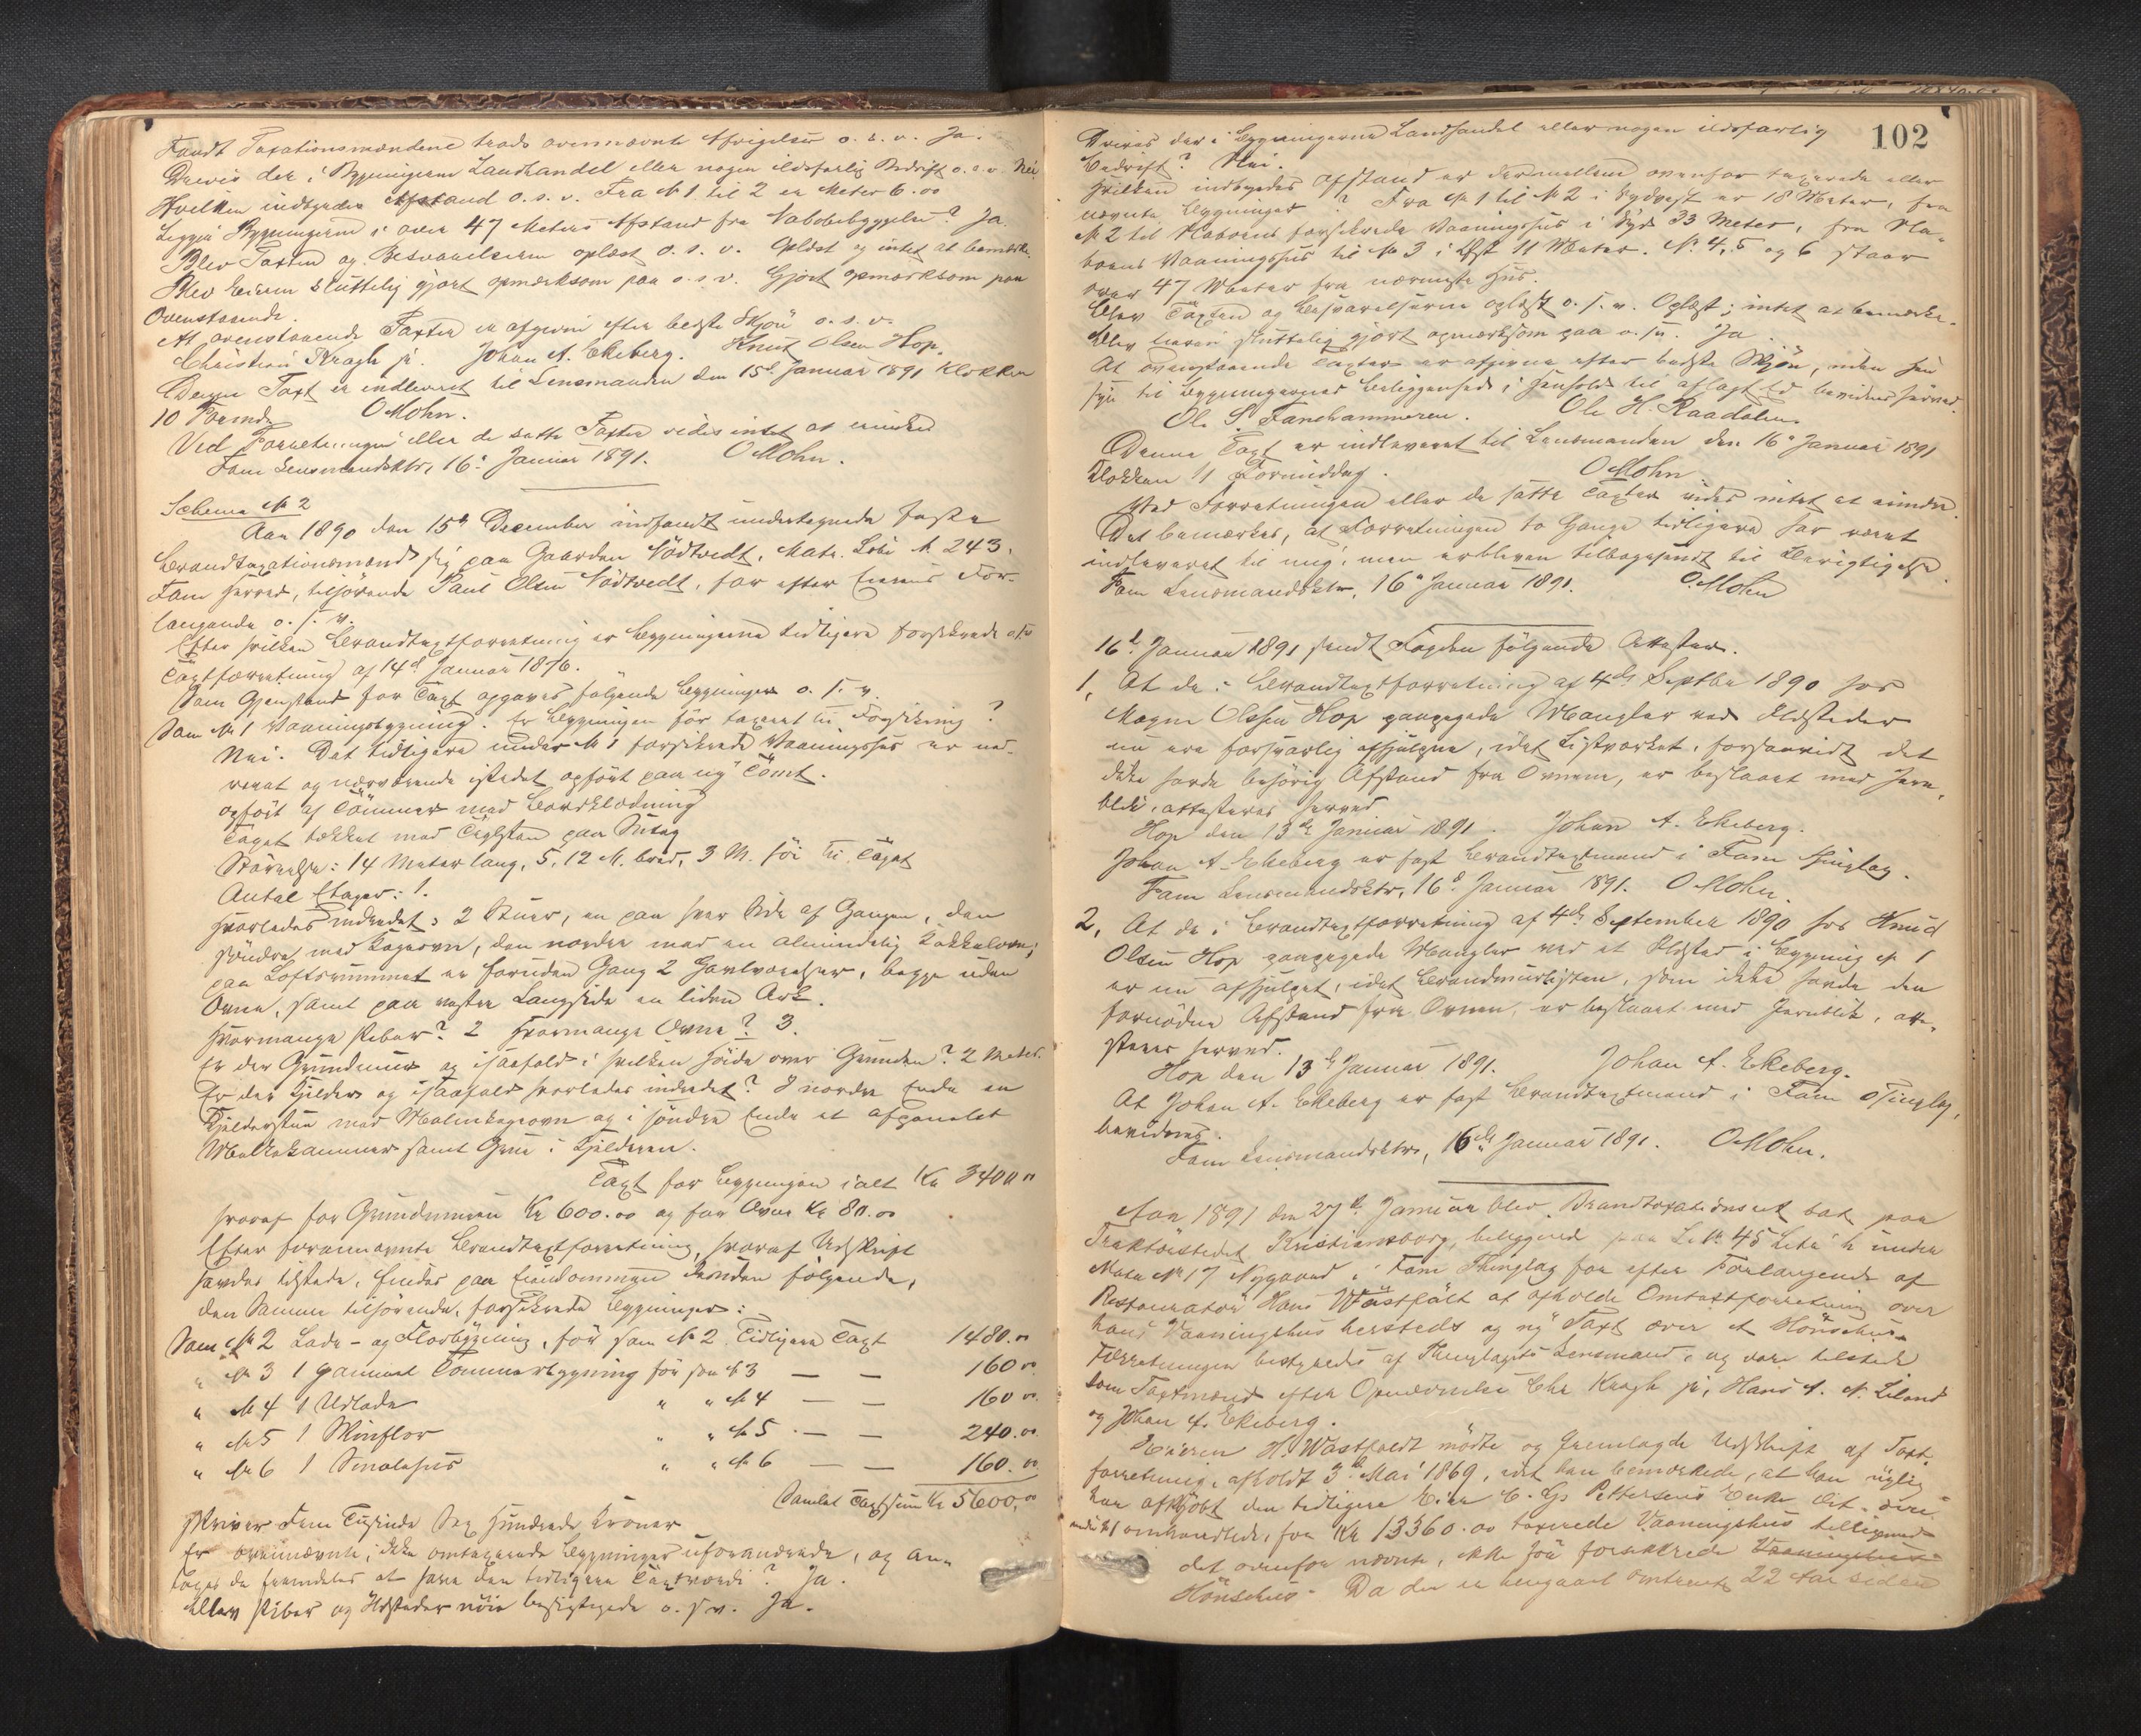 Fandt Taxationsmændene trods ovennævnte Afvigelser o. s. v. Ja.
Drives der i Bygningerne Landhandel eller nogen ildsfarlig Bedrift o. s. v. Nei.
Hvilken indbyrdes Afstand o. s. v. Fra No 1 til 2 er Meter 6.00
Ligger Bygningerne i over 47 Meters Afstand fra Nabobebyggelse? Ja.
Blev Taxten og Besvarelserne oplæst o. s. v. Oplæst og intet at bemærke.
Blev Eieren sluttelig gjort opmærksom paa o. s. v. Gjort opmærksom paa
Ovenstaaende.
At ovenstaaende Taxter er afgivne efter bedste Skjøn o. s. v.
Christian Kragh jr. Johan A. Ekeberg. Knut Olsen Hop.
Denne Taxt er indleveret til Lensmanden den 15d Januar 1891 Klokken
10 Formd. O Mohn.
Ved Forretningen eller de satte Taxter vides intet at erindre
Fane Lensmandsktr, 16d Januar 1891. O Mohn.
Schema No 2
Aar 1890 den 15d December indfandt undertegnede faste
Brandtaxationsmænd sig paa Gaarden Nödtvedt, Matr. Lobe No 243,
Fane Herred, tilhörende Paul Olsen Nödtvedt, for efter Eierens For-
langende o. s. v.
Efter hvilken Brandtaxtforretning er Bygningerne tidligere forsikrede o.s.v.
Taxtforretning af 14d Januar 1876.
Som Gjenstand for Taxt opgaves følgende Bygninger o. s. v.
Som No 1 Vaaningsbygning. Er Bygningen för taxeret til Forsikring?
Nei. Det tidligere under No 1 forsikrede Vaaningshus er ned-
revet og nærværende istedet opført paa ny Tomt.
opfört af Tömmer med Bordklædning
Taget tækket med Taglsten paa Sutag
Størrelse: 14 Meter lang, 5,12 M. bred, 3 M. höi til Taget
Antal Etager: 1.
Hvorledes indredet: 2 Stuer, en paa hver Side af Gangen, den
søndre med Kogeovn, den nordre med en almindelig Kakkelovn;
paa Loftsrummet er foruden Gang 2 Gavlværelser, begge uden
Ovne, samt paa vestre Langside en liden Ark.
Hvormange Piber? 2 Hvormange Ovne? 3.
Er der Grundmur og isaafald i hvilken Höide over Grunden? 2 Meter.
Er der Kjelder og isaafald hvorledes indredet? I nordre Ende en
Kjelderstue med Malmkogeovn og i söndre Ende et afpanelet
Melkekammer samt Grue i Kjelderen.
Taxt for Bygningen ialt Kr 3400.00
hvoraf for Grundmuren Kr 600.00 og for Ovne Kr 80.00
Efter forannævnte Brandtaxtforretning, hvoraf Udskrift
havdes tilstede, findes paa Eiendommen desuden følgende,
den Samme tilhörende, forsikrede Bygninger:
Som No 2 Lade- og Florbygning, för som No 2. Tidligere Taxt 1480.00
" No 3 1 gammel Tömmerbygning för som No 3 — — 160.00
" No 4 1 Udlade " " No 4 — — 160.00
" No 5 1 Vinflor " " No 5 — — 240.00
" No 6 1 Smalehus " " No 6 — — 160.00
Samlet Taxtsum Kr 5600.00
skriver Fem Tusinde Sex Hundrede Kroner
Er ovennævnte, ikke omtaxerede Bygninger uforandrede, og an-
tages de fremdeles at have den tidligere Taxtværdi? Ja.
Blev Piber og Ildsteder nöie besigtigede o. s. v. Ja.
102
Drives der i Bygningerne Landhandel eller nogen ildsfarlig
Bedrift? Nei.
Hvilken indbyrdes Afstand er der mellem ovenfor taxerede eller
nævnte Bygninger? Fra No 1 til No 2 i Sydvest er 18 Meter, fra
No 2 til Naboens forsikrede Vaaningshus i Syd 33 Meter, fra Na-
boens Vaaningshus til No 3 i Öst 11 Meter. No 4, 5 og 6 staar
over 47 Meter fra nærmeste Hus.
Blev Taxten og Besvarelserne oplæst o. s. v. Oplæst; intet at bemærke.
Blev Eieren sluttelig gjort opmærksom paa o. s. v. Ja.
At ovenstaaende Taxter er afgivne efter bedste Skjøn, uden Hen-
syn til Bygningernes Beliggenhed, i Henhold til aflagt Ed bevidnes herved.
Ole S. Fanehammeren. Ole H. Raadalen
Denne Taxt er indleveret til Lensmanden den 16d Januar 1891
Klokken 11 Formiddag. O Mohn
Ved Forretningen eller de satte Taxter vides intet at erindre.
Det bemærkes, at Forretningen to Gange tidligere har været
indleveret til mig, men erbleven tilbagesendt til Berigtigelse.
Fane Lensmandsktr, 16d Januar 1891. O. Mohn
16d Januar 1891 sendt Fogden følgende Attester.
1, At de i Brandtaxtforretning af 4de Septbr 1890 hos
Mogens Olsen Hop paapegede Mangler ved Ildsteder
nu ere forsvarlig afhjulpne, idet Listværket, forsaavidt det
ikke havde behörig Afstand fra Ovnene, er beslaaet med Jern-
blik, attesteres herved
Hop den 13de Januar 1891. Johan A. Ekeberg.
Johan A. Ekeberg er fast Brandtaxtmand i Fane Thinglag.
Fane Lensmandsktr, 16d Januar 1891. O Mohn.
2, At de i Brandtaxtforretning af 4de September 1890 hos Knud
Olsen Hop paapegede Mangler ved et Ildsted i Bygning No 1
er nu afhjulpet, idet Brandmurlisten, som ikke havde den
fornödne Afstand fra Ovnen, er beslaaet med Jernblik, atte-
steres herved.
Hop den 13de Januar 1891. Johan A. Ekeberg.
At Johan A. Ekeberg er fast Brandtaxtmand i Fane Thinglag,
bevidnes.
Fane Lensmandsktr, 16de Januar 1891. O Mohn.
Aar 1891 den 27de Januar blev Brandtaxationsret sat paa
Traktørstedet Kristiansborg, beliggende paa L. No 45 Litr h under
Matr No 17 Nygaard i Fane Thinglag for efter Forlangende af
Restauratör Hans Wästfält at afholde Omtaxtforretning over
hans Vaaningshus hersteds og ny Taxt over et Hönsehus.
Forretningen bestyredes af Thinglagets Lensmand, og vare tilstede
som Taxtmænd efter Opnævnelse Chr Kragh jr, Hans A. N. Liland
og Johan A. Ekeberg.
Eieren H. Wästfaldt mödte og fremlagde Udskrift af Taxt-
forretning, afholdt 3d Mai 1869, idet han bemærkede, at han nylig
har afkjöbt den tidligere Eier C. Gs Pettersens Enke det deri
under No 1 omhandlede, for Kr 13360.00 taxerede Vaaningshus tilligemed
det ovenfor nævnte, ikke för forsikrede Vaaningshus
Hönsehus. Da der er hengaaet omtrent 22 Aar siden